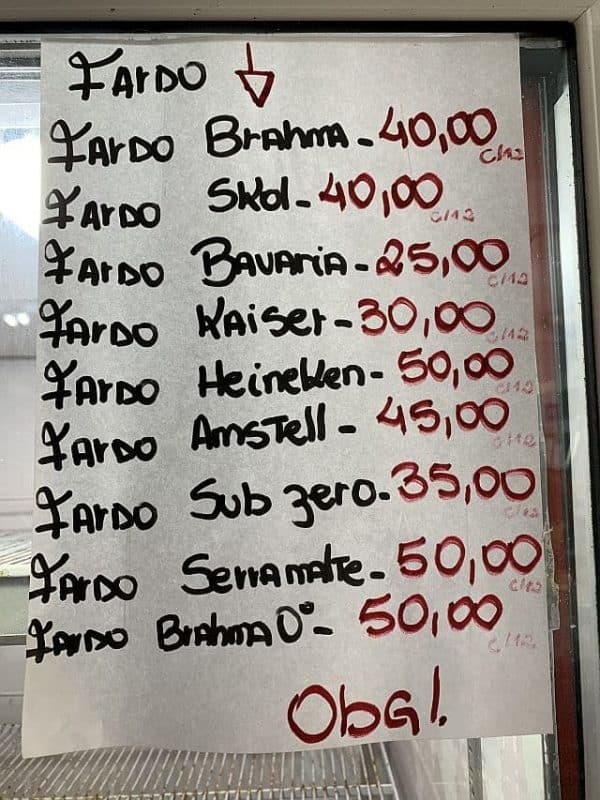 FARDO
FARDO Brahma - 40,00 c/12
FARDO Skol - 40,00 c/12
FARDO BAVARIA - 25,00 c/12
FARDO KAiser - 30,00 c/12
FARDO Heineklen - 50,00 c/12
FARDO AmsTell - 45,00 c/12
FARDO Sub zero - 35,00 c/12
FARDO Serramalte - 50,00 c/12
FARDO BrAhmA 0° - 50,00 c/12
ObG!